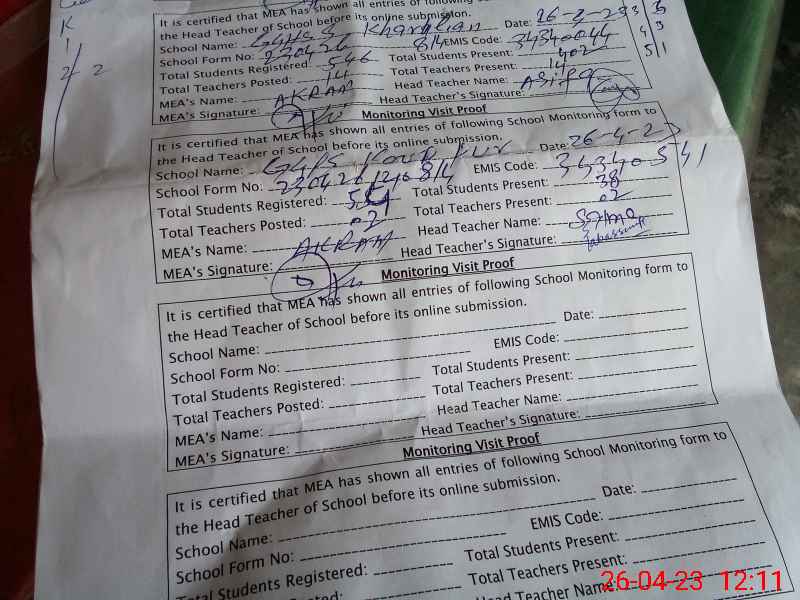 K
1
2 2
3 3
4 3
5 1
It is certified that MEA has shown all entries of following School Monitoring form to
the Head Teacher of School before its online submission.
School Name: GGHS Kharalian Date: 26-3-23
School Form No: 230426 814 EMIS Code: 34340044
Total Students Registered: 546 Total Students Present: 402
Total Teachers Posted: 14 Total Teachers Present: 14
MEA's Name: AKRAM Head Teacher Name: Asifa
MEA's Signature: Head Teacher's Signature:
Monitoring Visit Proof
It is certified that MEA has shown all entries of following School Monitoring form to
the Head Teacher of School before its online submission.
School Name: GGPS Date: 26-4-2
School Form No: 230426 EMIS Code: 34340541
Total Students Registered: Total Students Present: 38
Total Teachers Posted: 02 Total Teachers Present: 02
MEA's Name: AKRAM Head Teacher Name:
MEA's Signature: Head Teacher's Signature:
Monitoring Visit Proof
It is certified that MEA has shown all entries of following School Monitoring form to
the Head Teacher of School before its online submission.
School Name: Date:
School Form No: EMIS Code:
Total Students Registered: Total Students Present:
Total Teachers Posted: Total Teachers Present:
MEA's Name: Head Teacher Name:
MEA's Signature: Head Teacher's Signature:
Monitoring Visit Proof
It is certified that MEA has shown all entries of following School Monitoring form to
the Head Teacher of School before its online submission.
School Name: Date:
School Form No: EMIS Code:
Total Students Registered: Total Students Present:
Total Teachers Present:
Head Teacher Name:
26-04-23 12:11